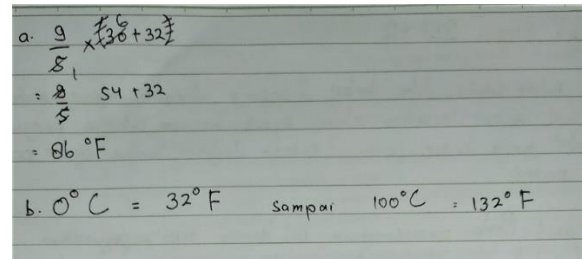 a. 9/5 × (30 + 32) 6 1
= 9/5 54 + 32
= 86 °F
b. 0° C = 32° F sampai 100°C = 132° F